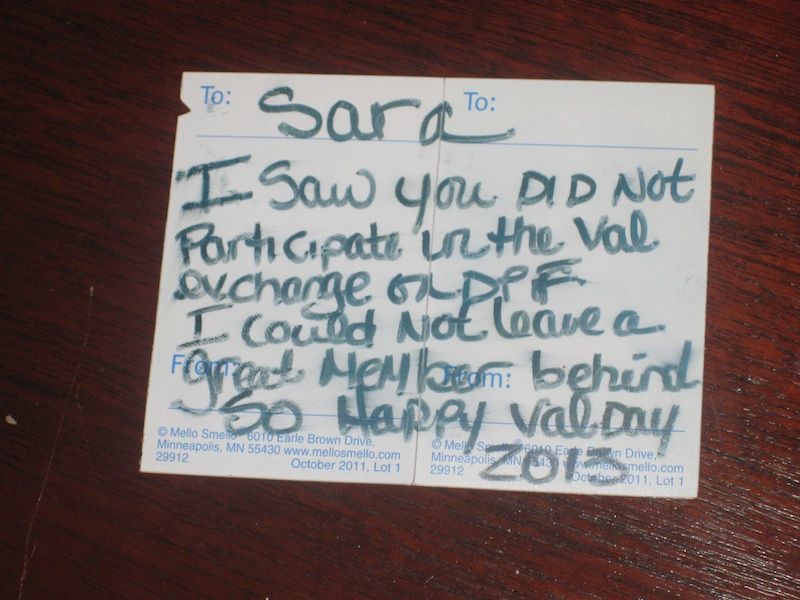 To: Sara To:
I Saw you DID Not
Participate in the Val
exchange on DPF.
I Could Not leave a
From: From:
great Member behind
So Happy Val Day
2013
© Mello Smello® 6010 Earle Brown Drive,
Minneapolis, MN 55430 www.mellosmello.com
29912 October 2011, Lot 1
© Mello Smello® 6010 Earle Brown Drive,
Minneapolis, MN 55430 www.mellosmello.com
29912 October 2011, Lot 1